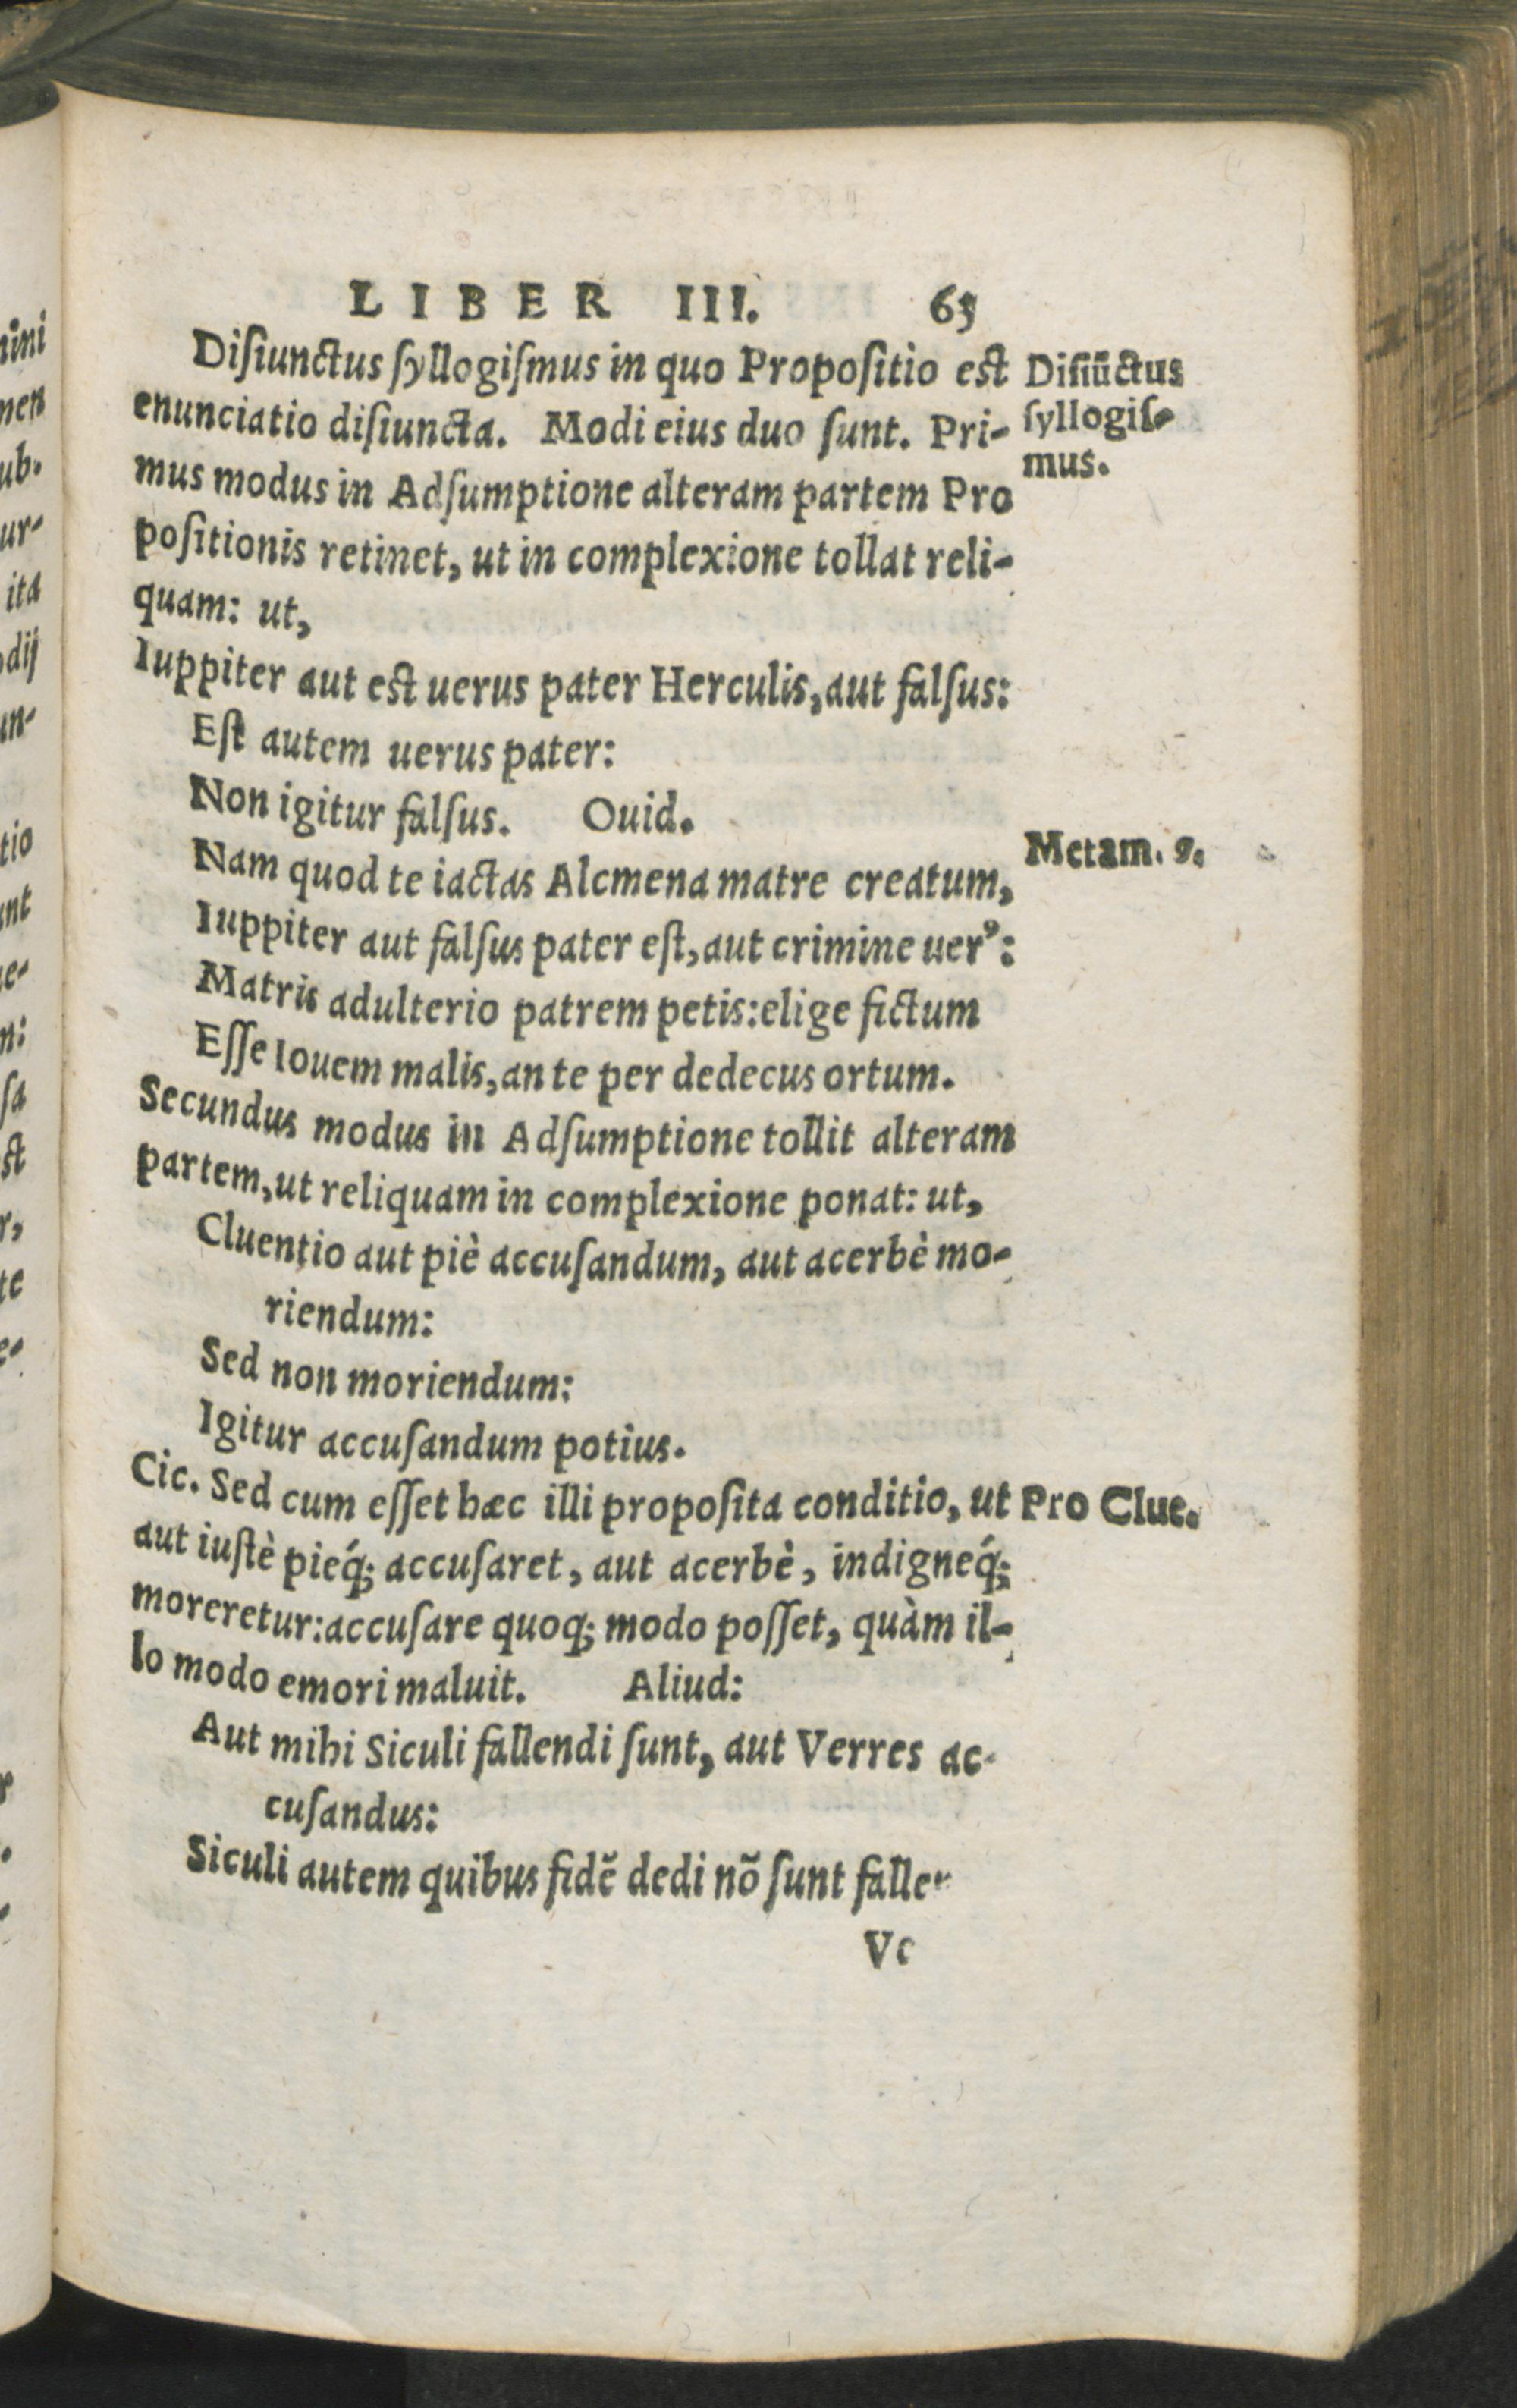 LIBER III. 65
Diſiunctus ſyllogiſmus in quo Propoſitio est
enunciatio diſiuncta. Modi eius duo ſunt. Pri-
mus modus in Adſumptione alteram partem Pro
poſitionis retinet, ut in complexione tollat reli-
quam: ut,
Iuppiter aut est uerus pater Herculis, aut falſus:
Eſt autem uerus pater:
Non igitur falſus. Ouid.
Nam quod te iactas Alcmena matre creatum,
Iuppiter aut falſus pater eſt, aut crimine uerꝰ:
Matris adulterio patrem petis: elige fictum
Eſſe Iouem malis, an te per dedecus ortum.
Secundus modus in Adſumptione tollit alteram
partem, ut reliquam in complexione ponat: ut,
Cluentio aut piè accuſandum, aut acerbè mo-
riendum:
Sed non moriendum:
Igitur accuſandum potius.
Cic. Sed cum eſſet hæc illi propoſita conditio, ut
aut iuſtè pieq́; accuſaret, aut acerbè, indigneq́;
moreretur: accuſare quoq; modo poſſet, quàm il-
lo modo emori maluit. Aliud:
Aut mihi Siculi fallendi ſunt, aut Verres ac-
cuſandus:
Siculi autem quibus fidẽ dedi nõ ſunt
Diſiũctus
ſyllogiſ-
mus.
Metam. 9.
Pro Clue.
nini
men
ub.
ur-
ita
dij
un-
tio
unt
n:
ſa